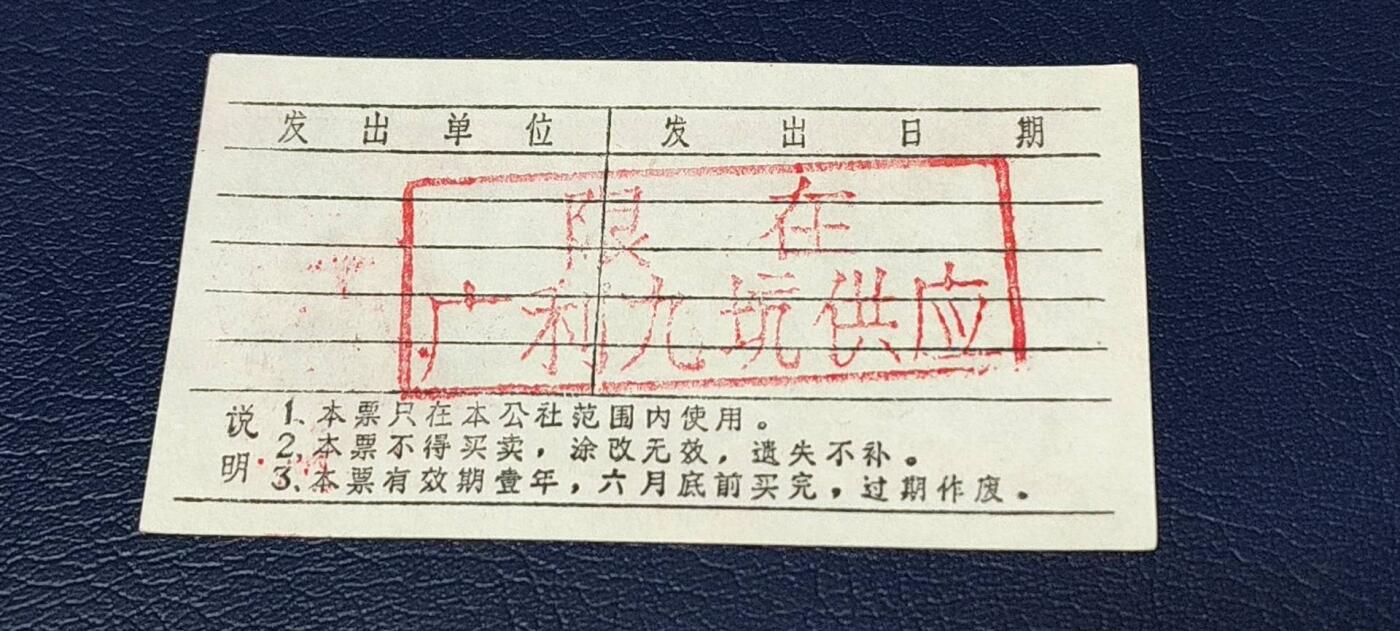 发出单位 发出日期
限在
广利九坑供应
说明
1.本票只在本公社范围内使用。
2.本票不得买卖，涂改无效，遗失不补。
3.本票有效期壹年，六月底前买完，过期作废。